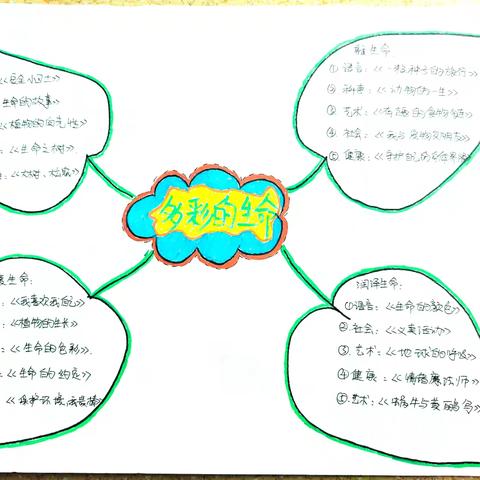 《安全小卫士》
生命的故事》
《植物的向光性》
：《生命之树》
：《大树、松鼠》
生命
①语言：《一粒种子的旅行》
②科学：《动物的一生》
③艺术：《有趣的食物链》
④社会：《我与宠物交朋友》
⑤健康：《守护自己的
多彩的生命
生命：
：《我喜欢我自己》
：《植物的生长》
：《生命的色彩》
：《生命的约定》
《保护环境
润泽生命：
①语言：《生命的颜色》
②社会：《义卖活动》
③艺术：《地球的呼吸》
④健康：《情绪魔法师》
⑤艺术：《蜗牛与黄鹂鸟》